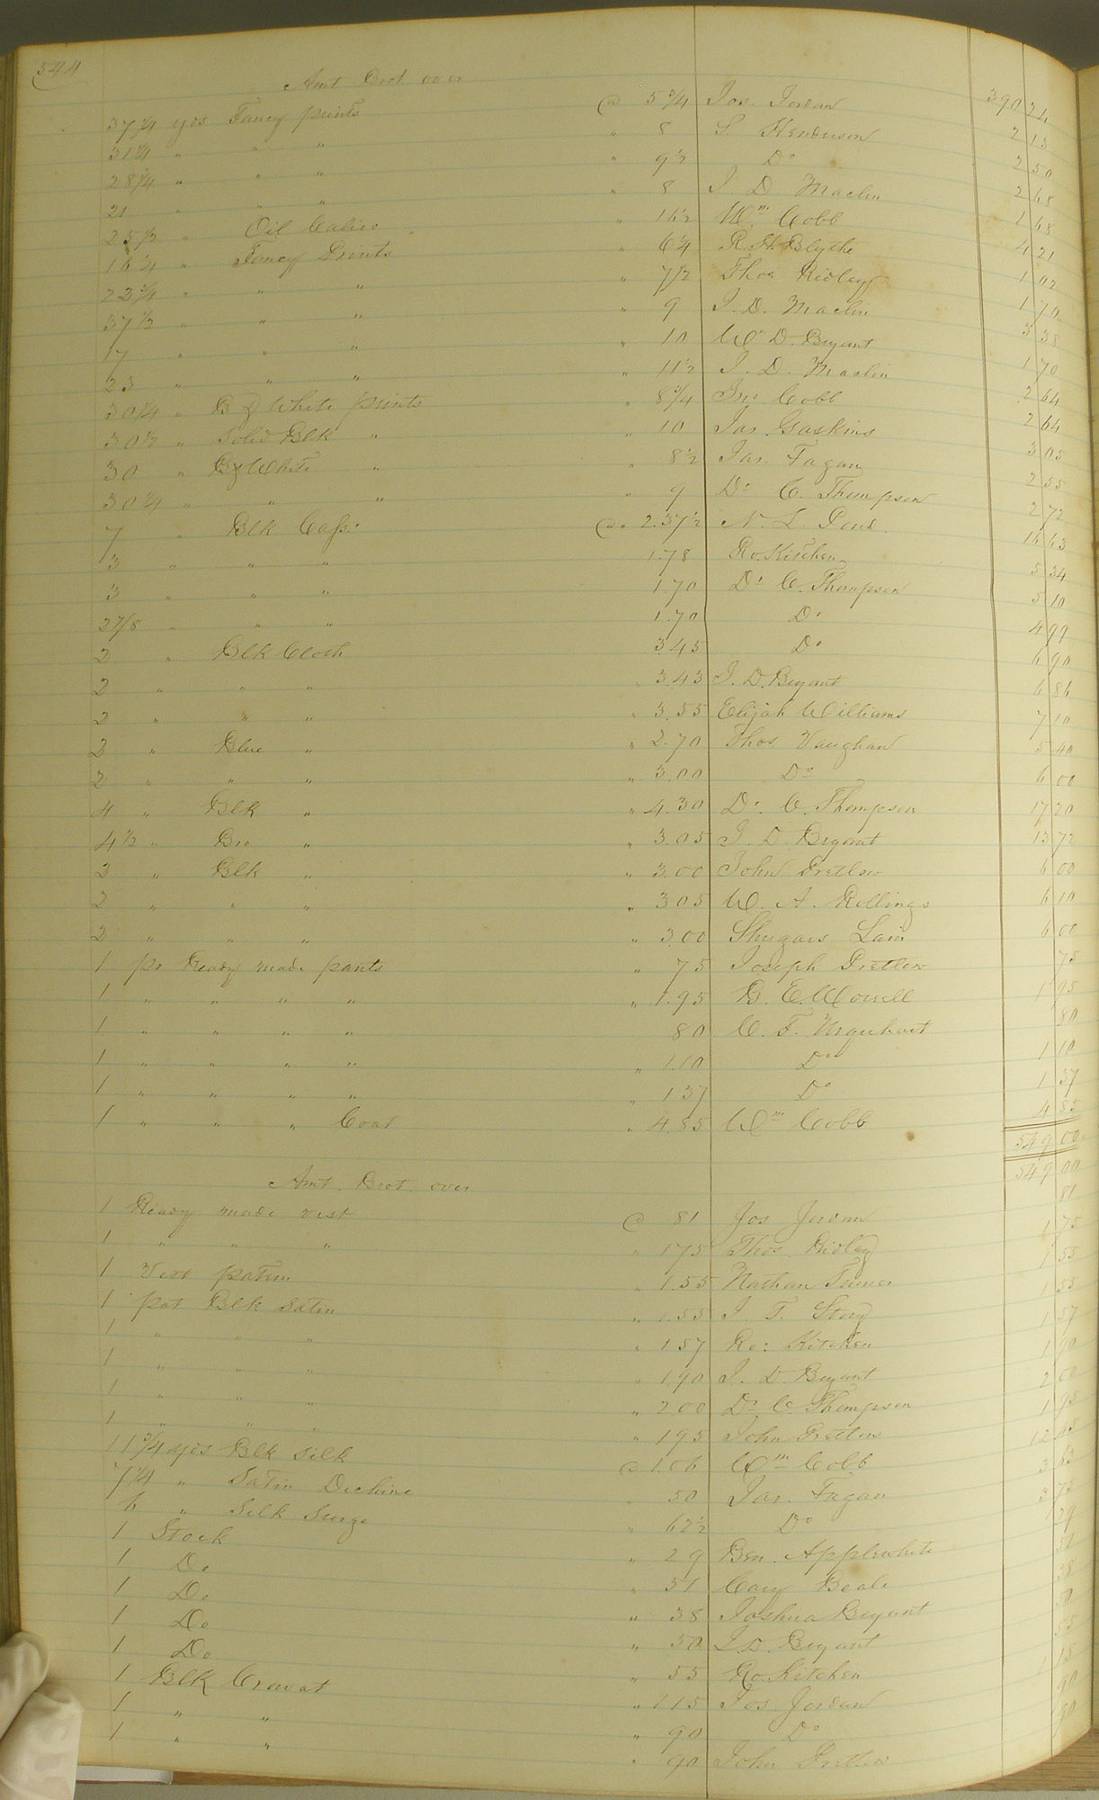 544
Amt Brot over 390 24
37 1/4 yds Fancy prints @ 5 3/4 Jos. Jordan 2 13
31 1/4 " " " " 8 S Henderson 2 50
28 1/4 " " " " 9 1/2 Do 2 68
21 " " " " 8 J. D. Maclin 1 68
25 1/2 " Oil Calico " 16 1/2 Wm Cobb 4 21
16 1/4 " Fancy Prints " 6 1/4 R. H. Blythe 1 02
23 3/4 " " " " 7 1/2 Thos Ridley 1 70
37 1/2 " " " " 9 J. D. Maclin 3 38
17 " " " " 10 Wm D. Bryant 1 70
23 " " " " 11 1/2 J. D. Maclin 2 64
30 1/4 " B & White prints " 8 3/4 Jno Cobb 2 64
30 1/2 " Solid Blk " " 10 Jas. Gaskins 3 05
30 " B & White " " 8 1/2 Jas. Fagan 2 55
30 1/4 " " " " 9 Dr C. Thompson 2 72
7 " Blk Cass: @ 2.37 1/2 N. L. 16 63
3 " " " 1.78 Ro. Kitchen 5 34
3 " " " 1.70 Dr C. Thompson 5 10
2 7/8 " " " 1.70 Do 4 99
2 " Blk Cloth 3.45 Do 6 90
2 " " " " 3.43 J. D. Bryant 6 86
2 " " " " 3.55 Elijah Williams 7 10
2 " Blue " " 2.70 Thos Vaughan 5 40
2 " " " " 3.00 Do 6 00
4 " Blk " " 4.30 Dr C. Thompson 17 20
4 1/2 " Bro " " 3.05 J. D. Bryant 13 72
2 " Blk " " 3.00 John Pretlow 6 00
2 " " " " 3.05 W. A. Rollings 6 10
2 " " " " 3.00 Shugars Lain 6 00
1 pr Ready made pants " 75 Joseph Pretlow 75
1 " " " " " 1.95 B. E. Worrell 1 95
1 " " " " 80 C. F. Urquhart 80
1 " " " " " 1.10 Do 1 10
1 " " " " " 1.37 Do 1 37
1 " " " Coat " 4.85 Wm Cobb 4 85
549 00
Amt. Brot. over 549 00
1 Ready made vest @ 81 Jos Jordan 81
1 " " " " 1.75 Thos. Ridley 1 75
1 Vest pattern " 1.55 Nathan Turner 1 55
1 pat Blk Satin " 1.55 J. T. Story 1 55
1 " " " " 1.57 Ro: Kitchen 1 57
1 " " " " 1.90 J. D. Bryant 1 90
1 " " " " 2.00 Dr C. Thompson 2 00
1 " " " " 1.95 John Pretlow 1 95
11 3/4 yds Blk Silk @ 1.06 Wm Cobb 12 45
7 1/4 " Satin Dechine " 50 Jas. Fagan 3 63
6 " Silk Surge " 62 1/2 Do 3 75
1 Stock " 29 Ben. Applewhite 29
1 Do " 31 Cary Beale 31
1 Do " 38 Joshua Bryant 38
1 Do " 50 J. D. Bryant 50
1 Do " 55 Ro. Kitchen 55
1 Blk Cravat " 1.15 Jos Jordan 1 15
1 " " " 90 Do 90
1 " " " 90 John Pretlow 90